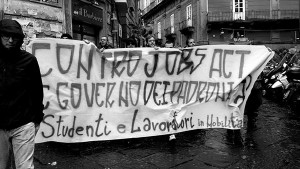 CONTRO JOBS ACT
E GOVERNO DEI PADRONI
Studenti e Lavoratori in Mobilita